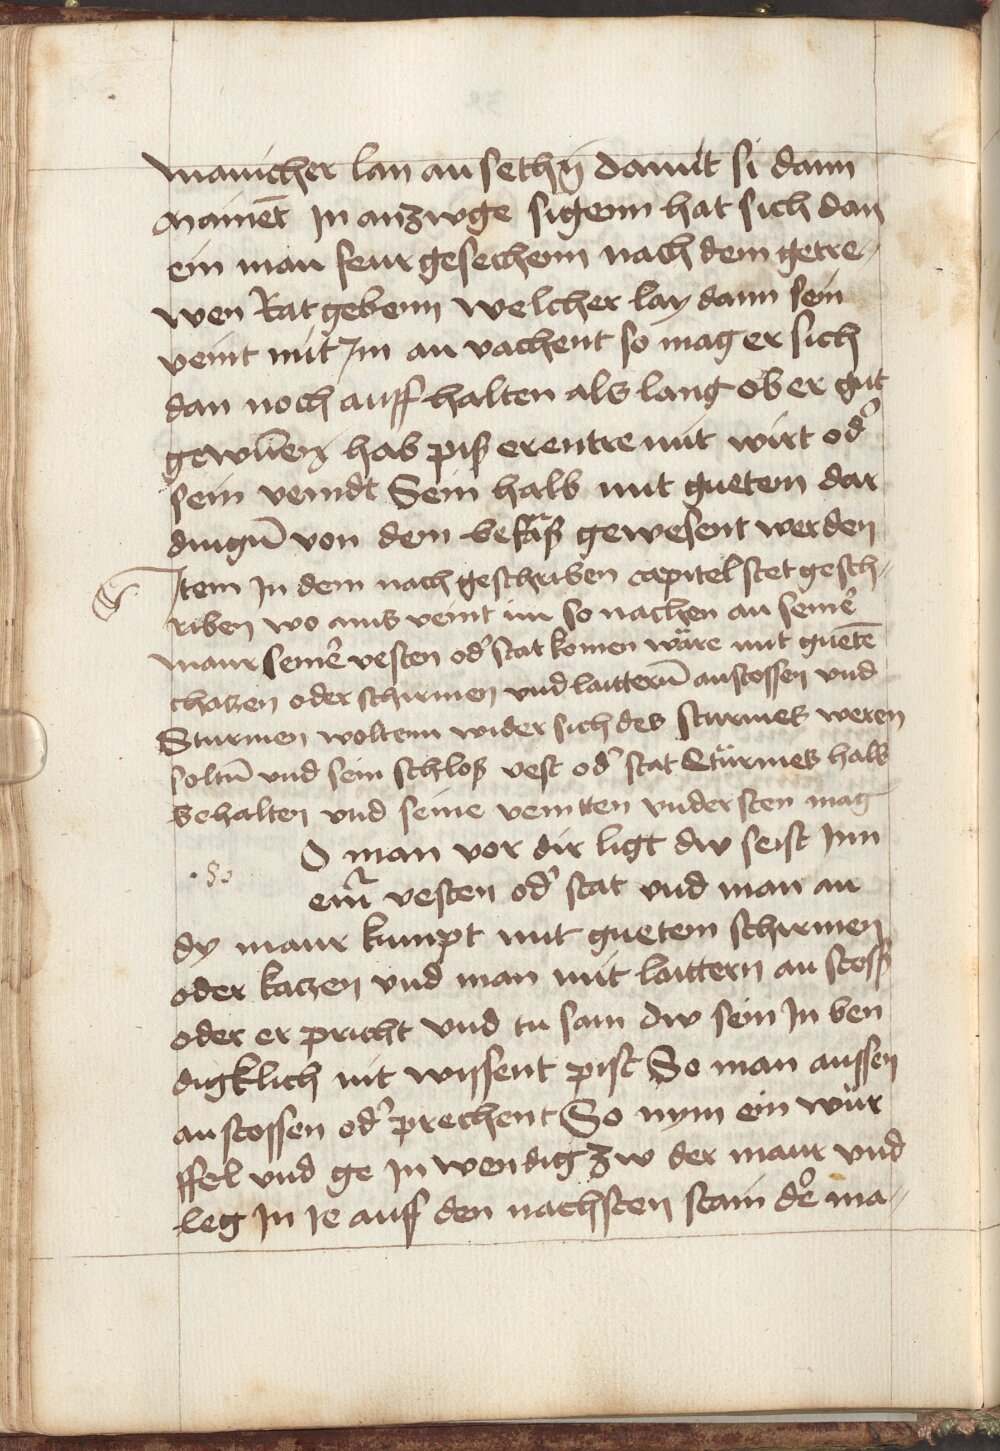 manicher lay an sethn̄ damit si dann
mainēt In anzwge sigenn hat sich dan
ein man feur gesechenn nach dem getre-
wen Rat gebenn welcher lay dann sein
veint mit Im an vachent so mag er sich
dan noch auff halten als lang ob er gut
gewūen hab piß er entre nnt wirt od̾
sein veindt Sein halb mit guetem dar
dingn̄ von dem besaß gewesent werden
Item In dem nach geschriben capitel stet gesch-
riben wo ains veint im so nachen an sein̄e
maur sein̄e vesten od̾ stat komen wäre mit guetē
chatzen oder schirmen vnd laittern̄ anstossen vnd
Sturmen woltenn wider sich des sturmes weren
soltn̄ vnd sein schloß vest od̾ stat Stürmes halb
behalten vnd seine veintten vnder sten mag
.So. O man vor dir ligt dw seist Inn
ein̄ vesten od̾ stat vnd man an
dy maur kumpt mit guetem schirmen
oder katzen vnd man mit laittern an stoss
oder er pricht vnd tu sam dw sein In ben
digklich nit wissent pist So man aussen
an stossen od̾ prechent So nym ein wür
ffel vnd ge In wendig zw der maur vnd
leg In ie auf den nachsten stain de̾ ma-